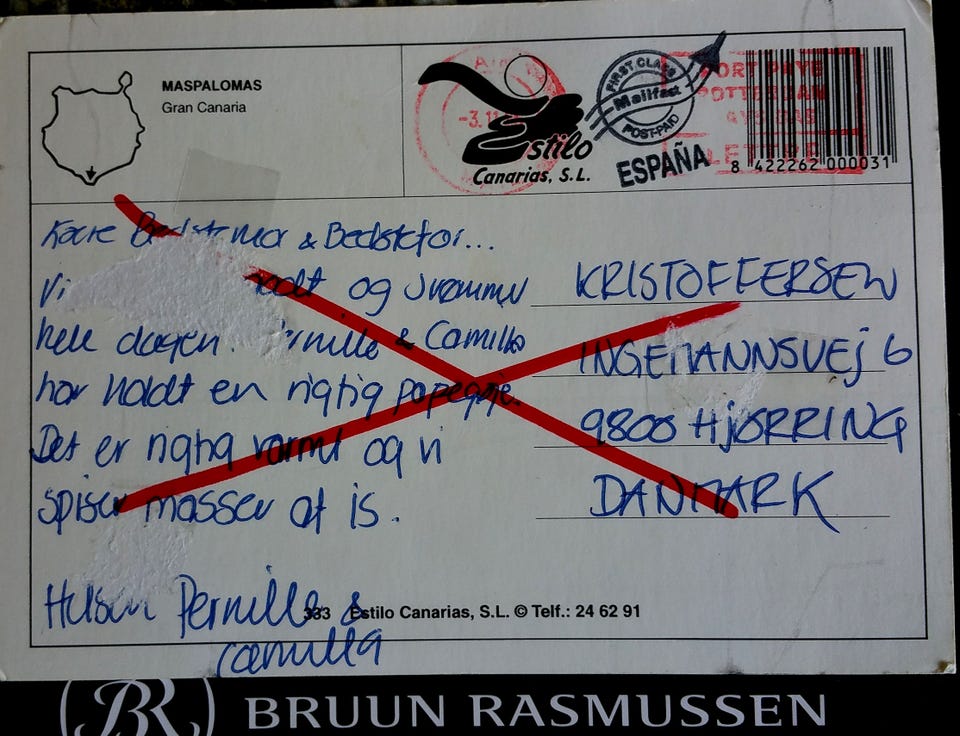 MASPALOMAS
Gran Canaria
-3.11
Estilo
Canarias, S.L.
FIRST CLASS
Mailfast
POST-PAID
ESPAÑA
PORT PAYE
ROTTERDAM
LETTRE
8 422262 000031
Kære Bedstemor & Bedstefar...
Vi og svømmer
hele dagen. Pernille & Camilla
har holdt en rigtig papegøje.
Det er rigtig varmt og vi
spiser masser af is.
Hilsen Pernille &
Camilla
KRISTOFFERSEN
INGEMANNSVEJ 6
9800 HJØRRING
DANMARK
333 Estilo Canarias, S.L. © Telf.: 24 62 91
BR BRUUN RASMUSSEN